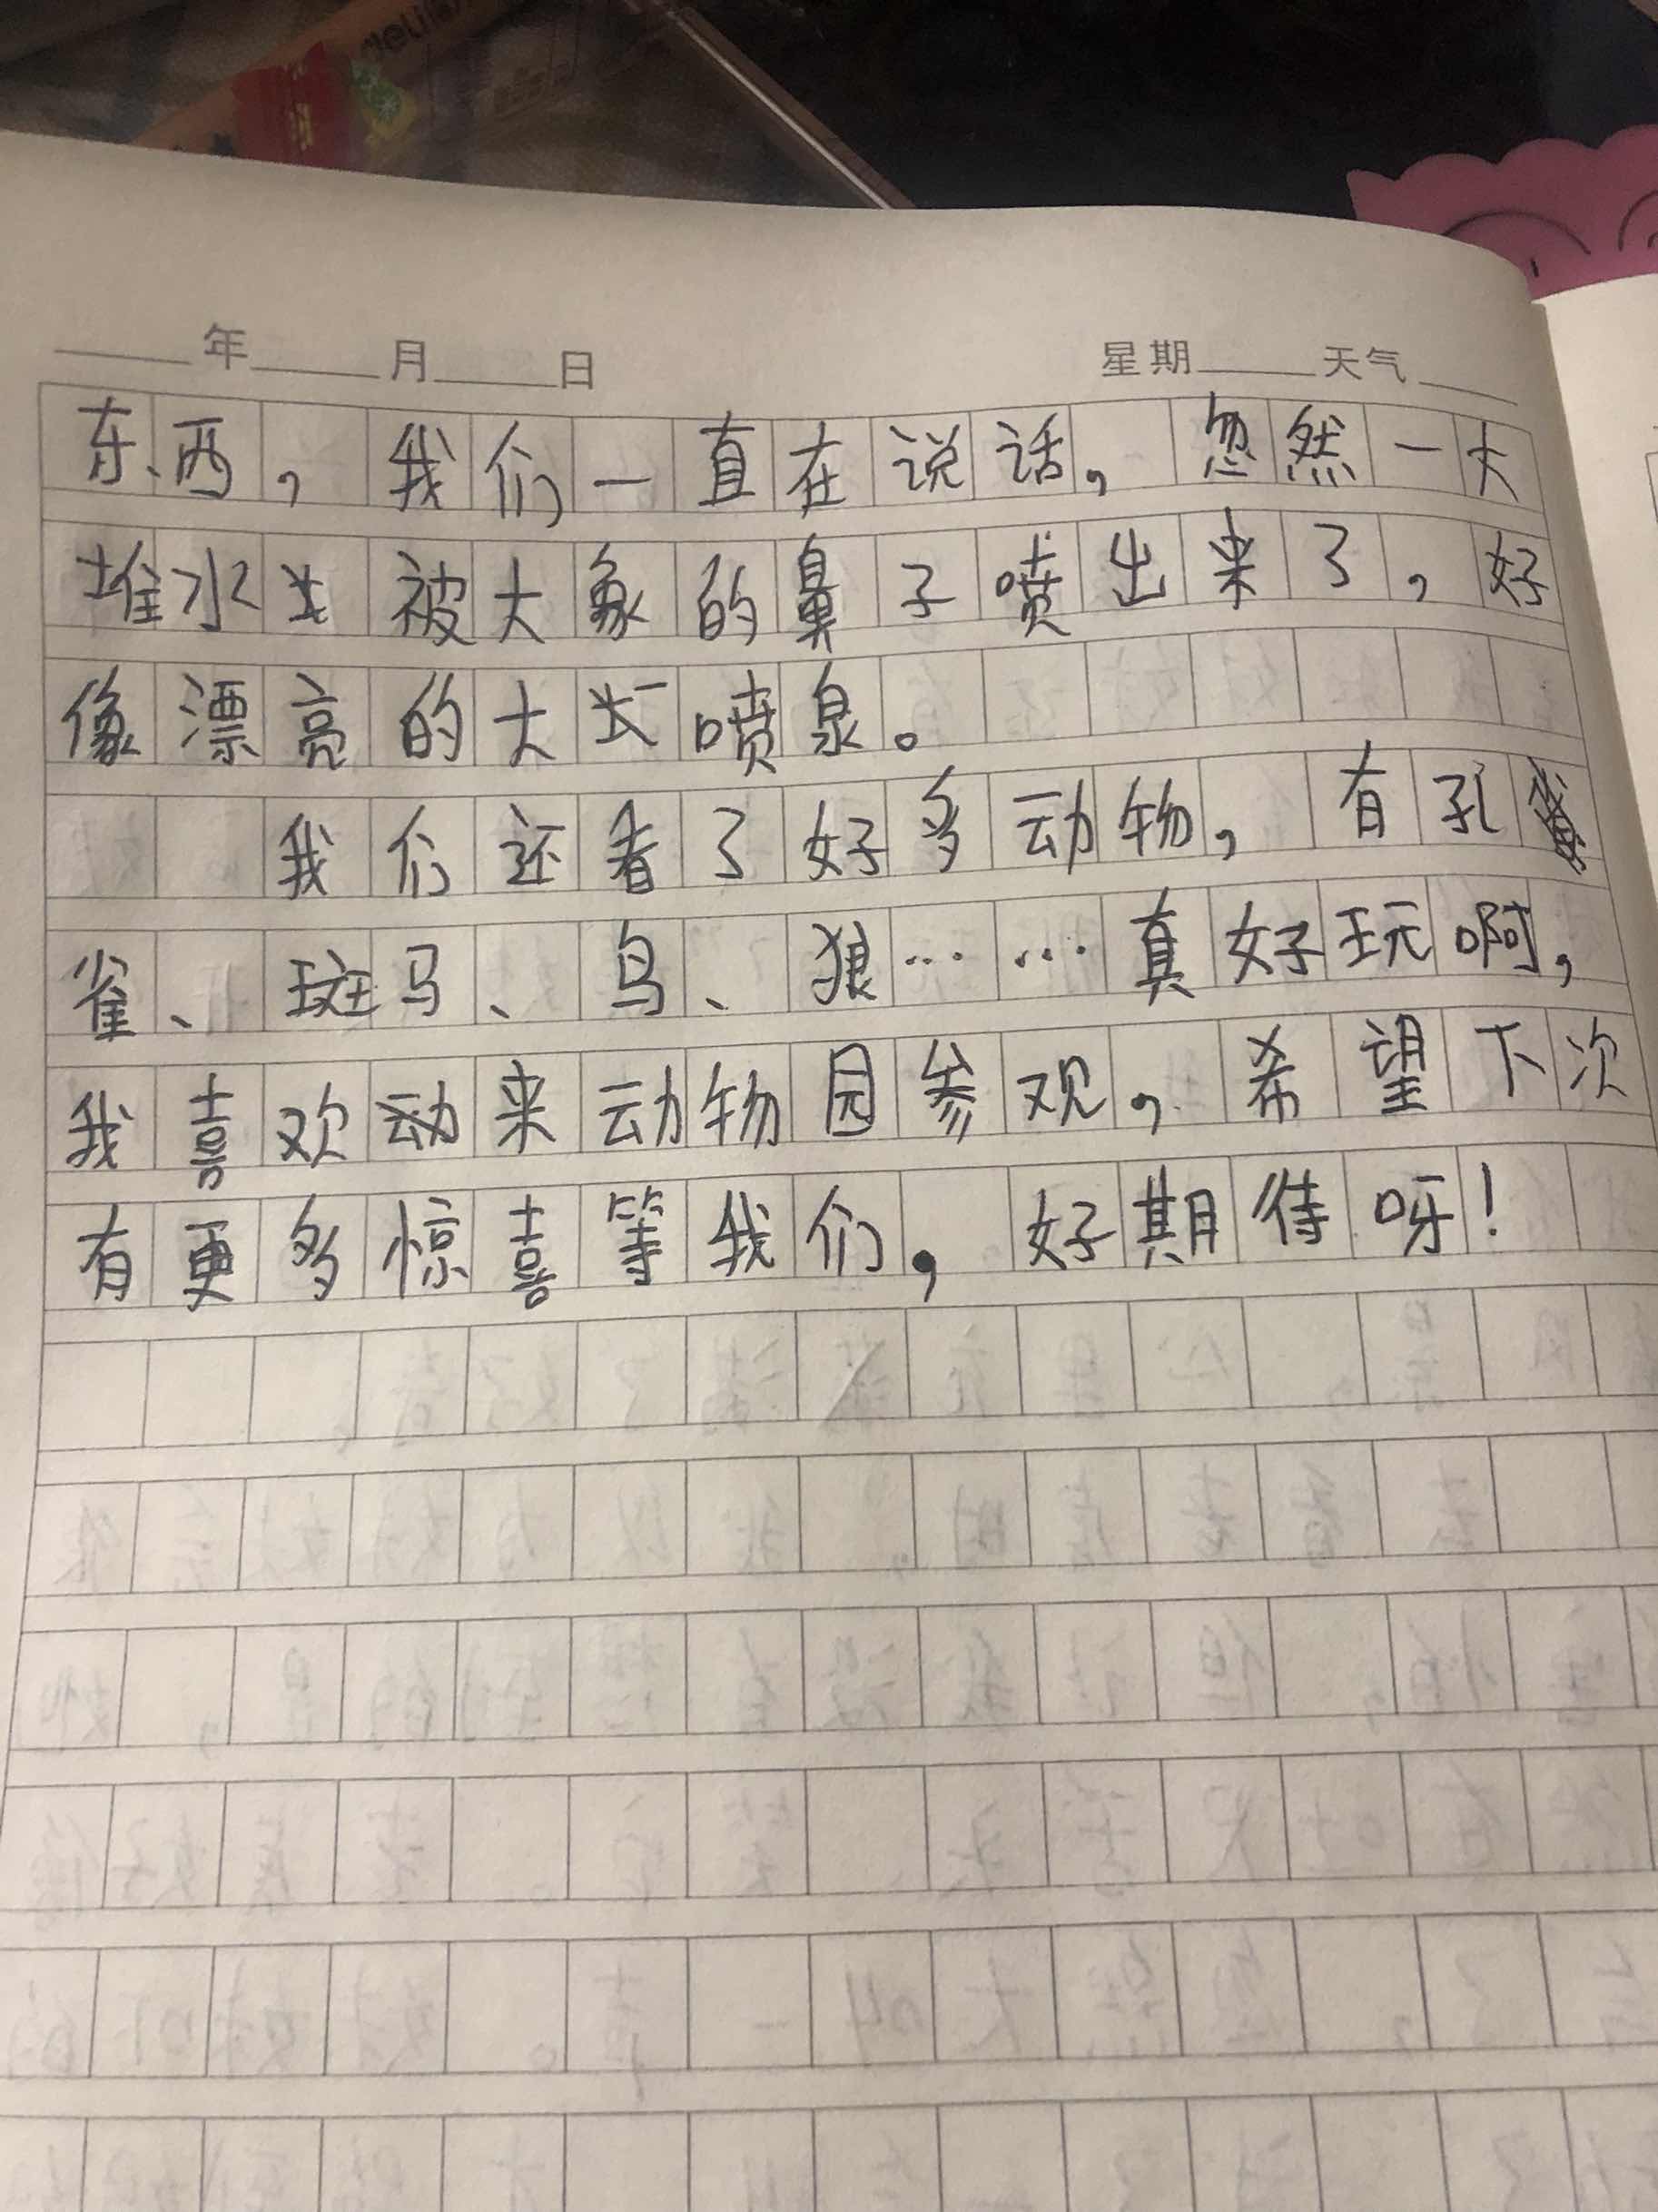 meli
____年____月____日 星期____天气____
东西，我们一直在说话，忽然一大
堆水被大象的鼻子喷出来了，好
像漂亮的大喷泉。
我们还看了好多动物，有孔
雀、斑马、鸟、狼……真好玩啊，
我喜欢动来动物园参观，希望下次
有更多惊喜等我们，好期待呀！